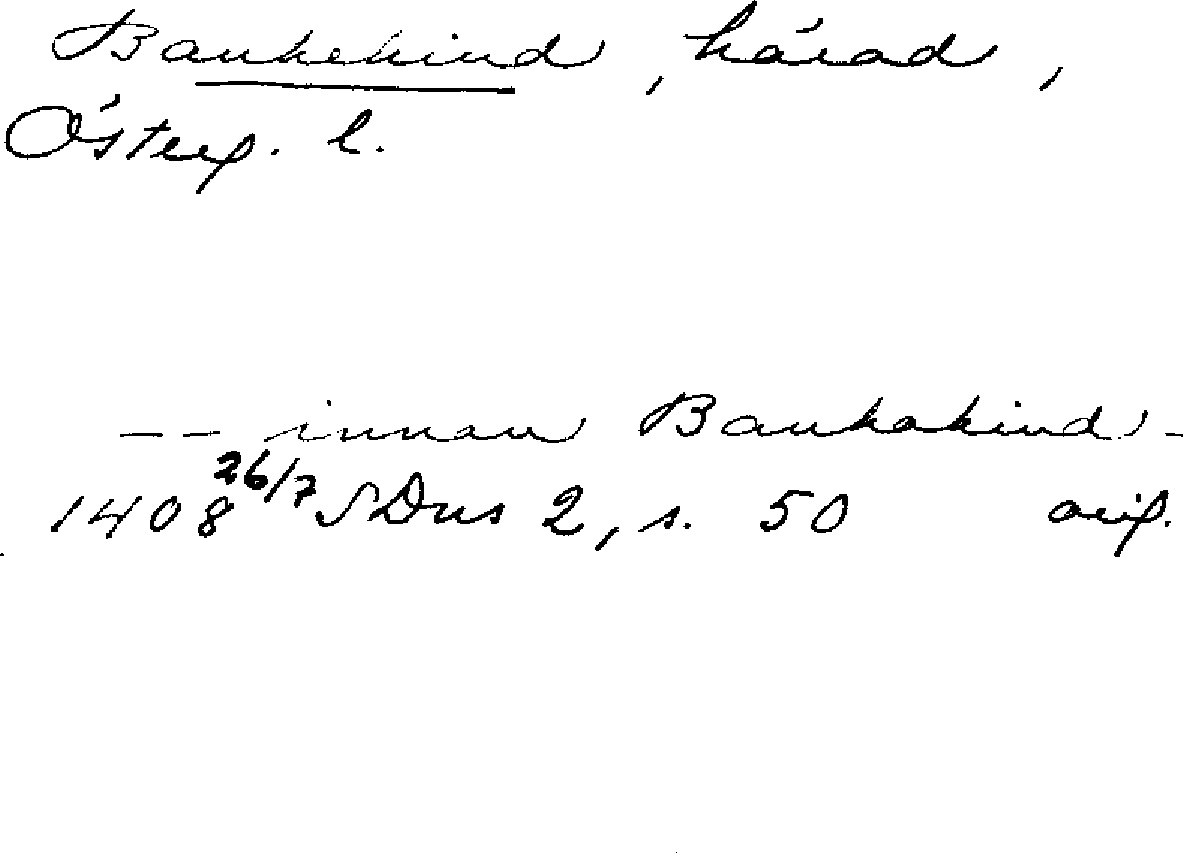 Bankekind, härad,
Österg. l.
-- innan Bankakind -
1408 26/7 SDns 2, s. 50 orig.